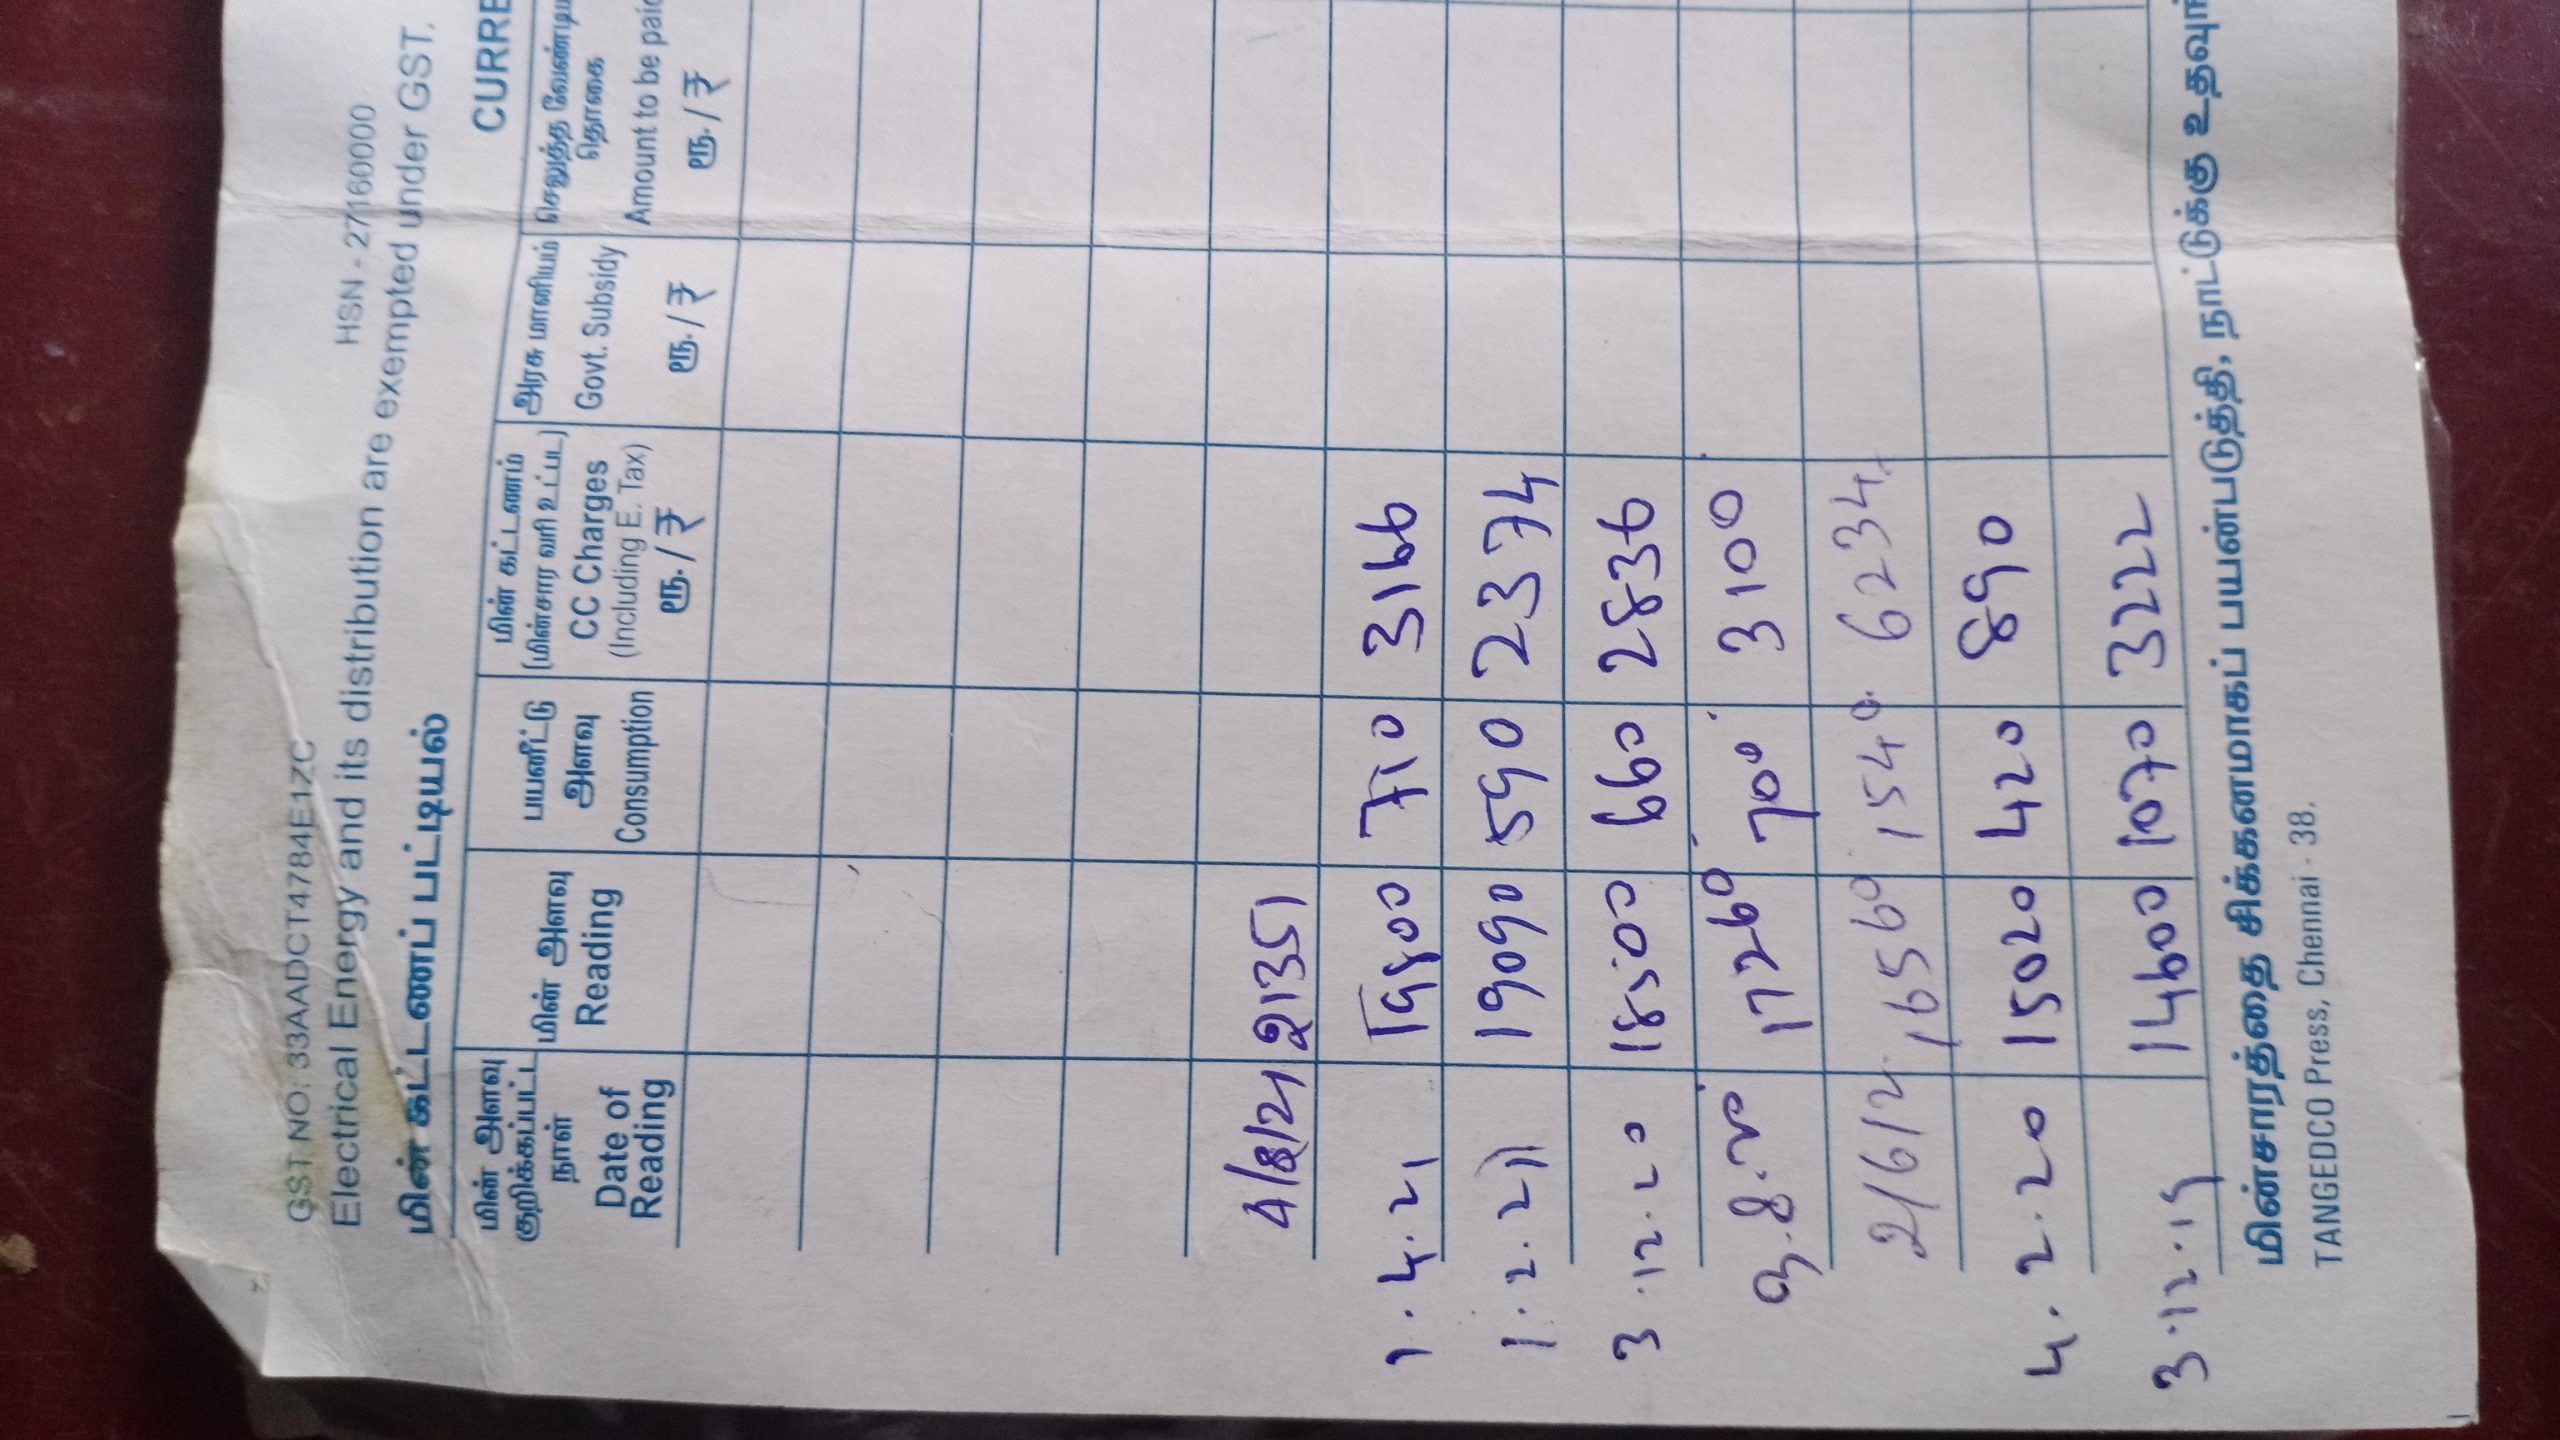 GST NO: 33AADCT4784E1ZC HSN - 27160000
Electrical Energy and its distribution are exempted under GST.
மின் கட்டணப் பட்டியல் CURRE
மின் அளவு
குறிக்கப்பட்ட
நாள்
Date of
Reading
மின் அளவு
Reading
பயனீட்டு
அளவு
Consumption
மின் கட்டணம்
(மின்சார வரி உட்பட)
CC Charges
(Including E. Tax)
ரூ./₹
அரசு மானியம்
Govt. Subsidy
ரூ./₹
செலுத்த வேண்டிய
தொகை
Amount to be paid
ரூ./₹
4/8/21 21351
1.4.21 19800 710 3166
1.2.21 19090 590 2374
3.12.20 18500 660 2836
17260 700 3100
16560 1540 6234
4.2.20 15020 420 890
3.12.19 14600 1070 3222
மின்சாரத்தை சிக்கனமாகப் பயன்படுத்தி, நாட்டுக்கு உதவுங்
TANGEDCO Press, Chennai - 38.